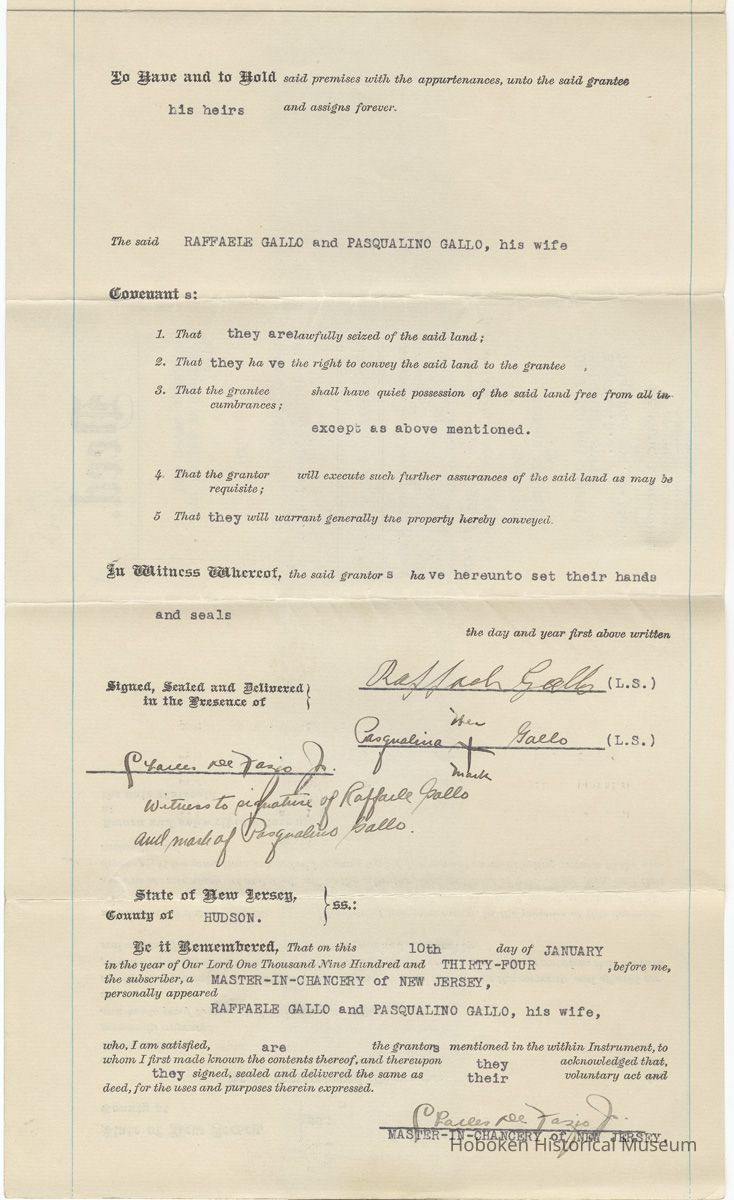 To Have and to Hold said premises with the appurtenances, unto the said grantee
his heirs and assigns forever.
The said RAFFAELE GALLO and PASQUALINO GALLO, his wife
Covenant s:
1. That they are lawfully seized of the said land;
2. That they ha ve the right to convey the said land to the grantee ,
3. That the grantee shall have quiet possession of the said land free from all in-
cumbrances;
except as above mentioned.
4. That the grantor will execute such further assurances of the said land as may be
requisite;
5 That they will warrant generally the property hereby conveyed.
In Witness Whereof, the said grantor s ha ve hereunto set their hands
and seals
the day and year first above written
Signed, Sealed and Delivered }
in the Presence of
Raffaele Gallo (L.S.)
her
Pasqualina X Gallo (L.S.)
mark
Charles De Fazio Jr.
Witness to signature of Raffaele Gallo
and mark of Pasqualino Gallo.
State of New Jersey, } ss.:
County of HUDSON.
Be it Remembered, That on this 10th day of JANUARY
in the year of Our Lord One Thousand Nine Hundred and THIRTY-FOUR , before me,
the subscriber, a MASTER-IN-CHANCERY of NEW JERSEY,
personally appeared
RAFFAELE GALLO and PASQUALINO GALLO, his wife,
who, I am satisfied, are the grantors mentioned in the within Instrument, to
whom I first made known the contents thereof, and thereupon they acknowledged that,
they signed, sealed and delivered the same as their voluntary act and
deed, for the uses and purposes therein expressed.
Charles De Fazio Jr.
MASTER-IN-CHANCERY of NEW JERSEY.
Hoboken Historical Museum